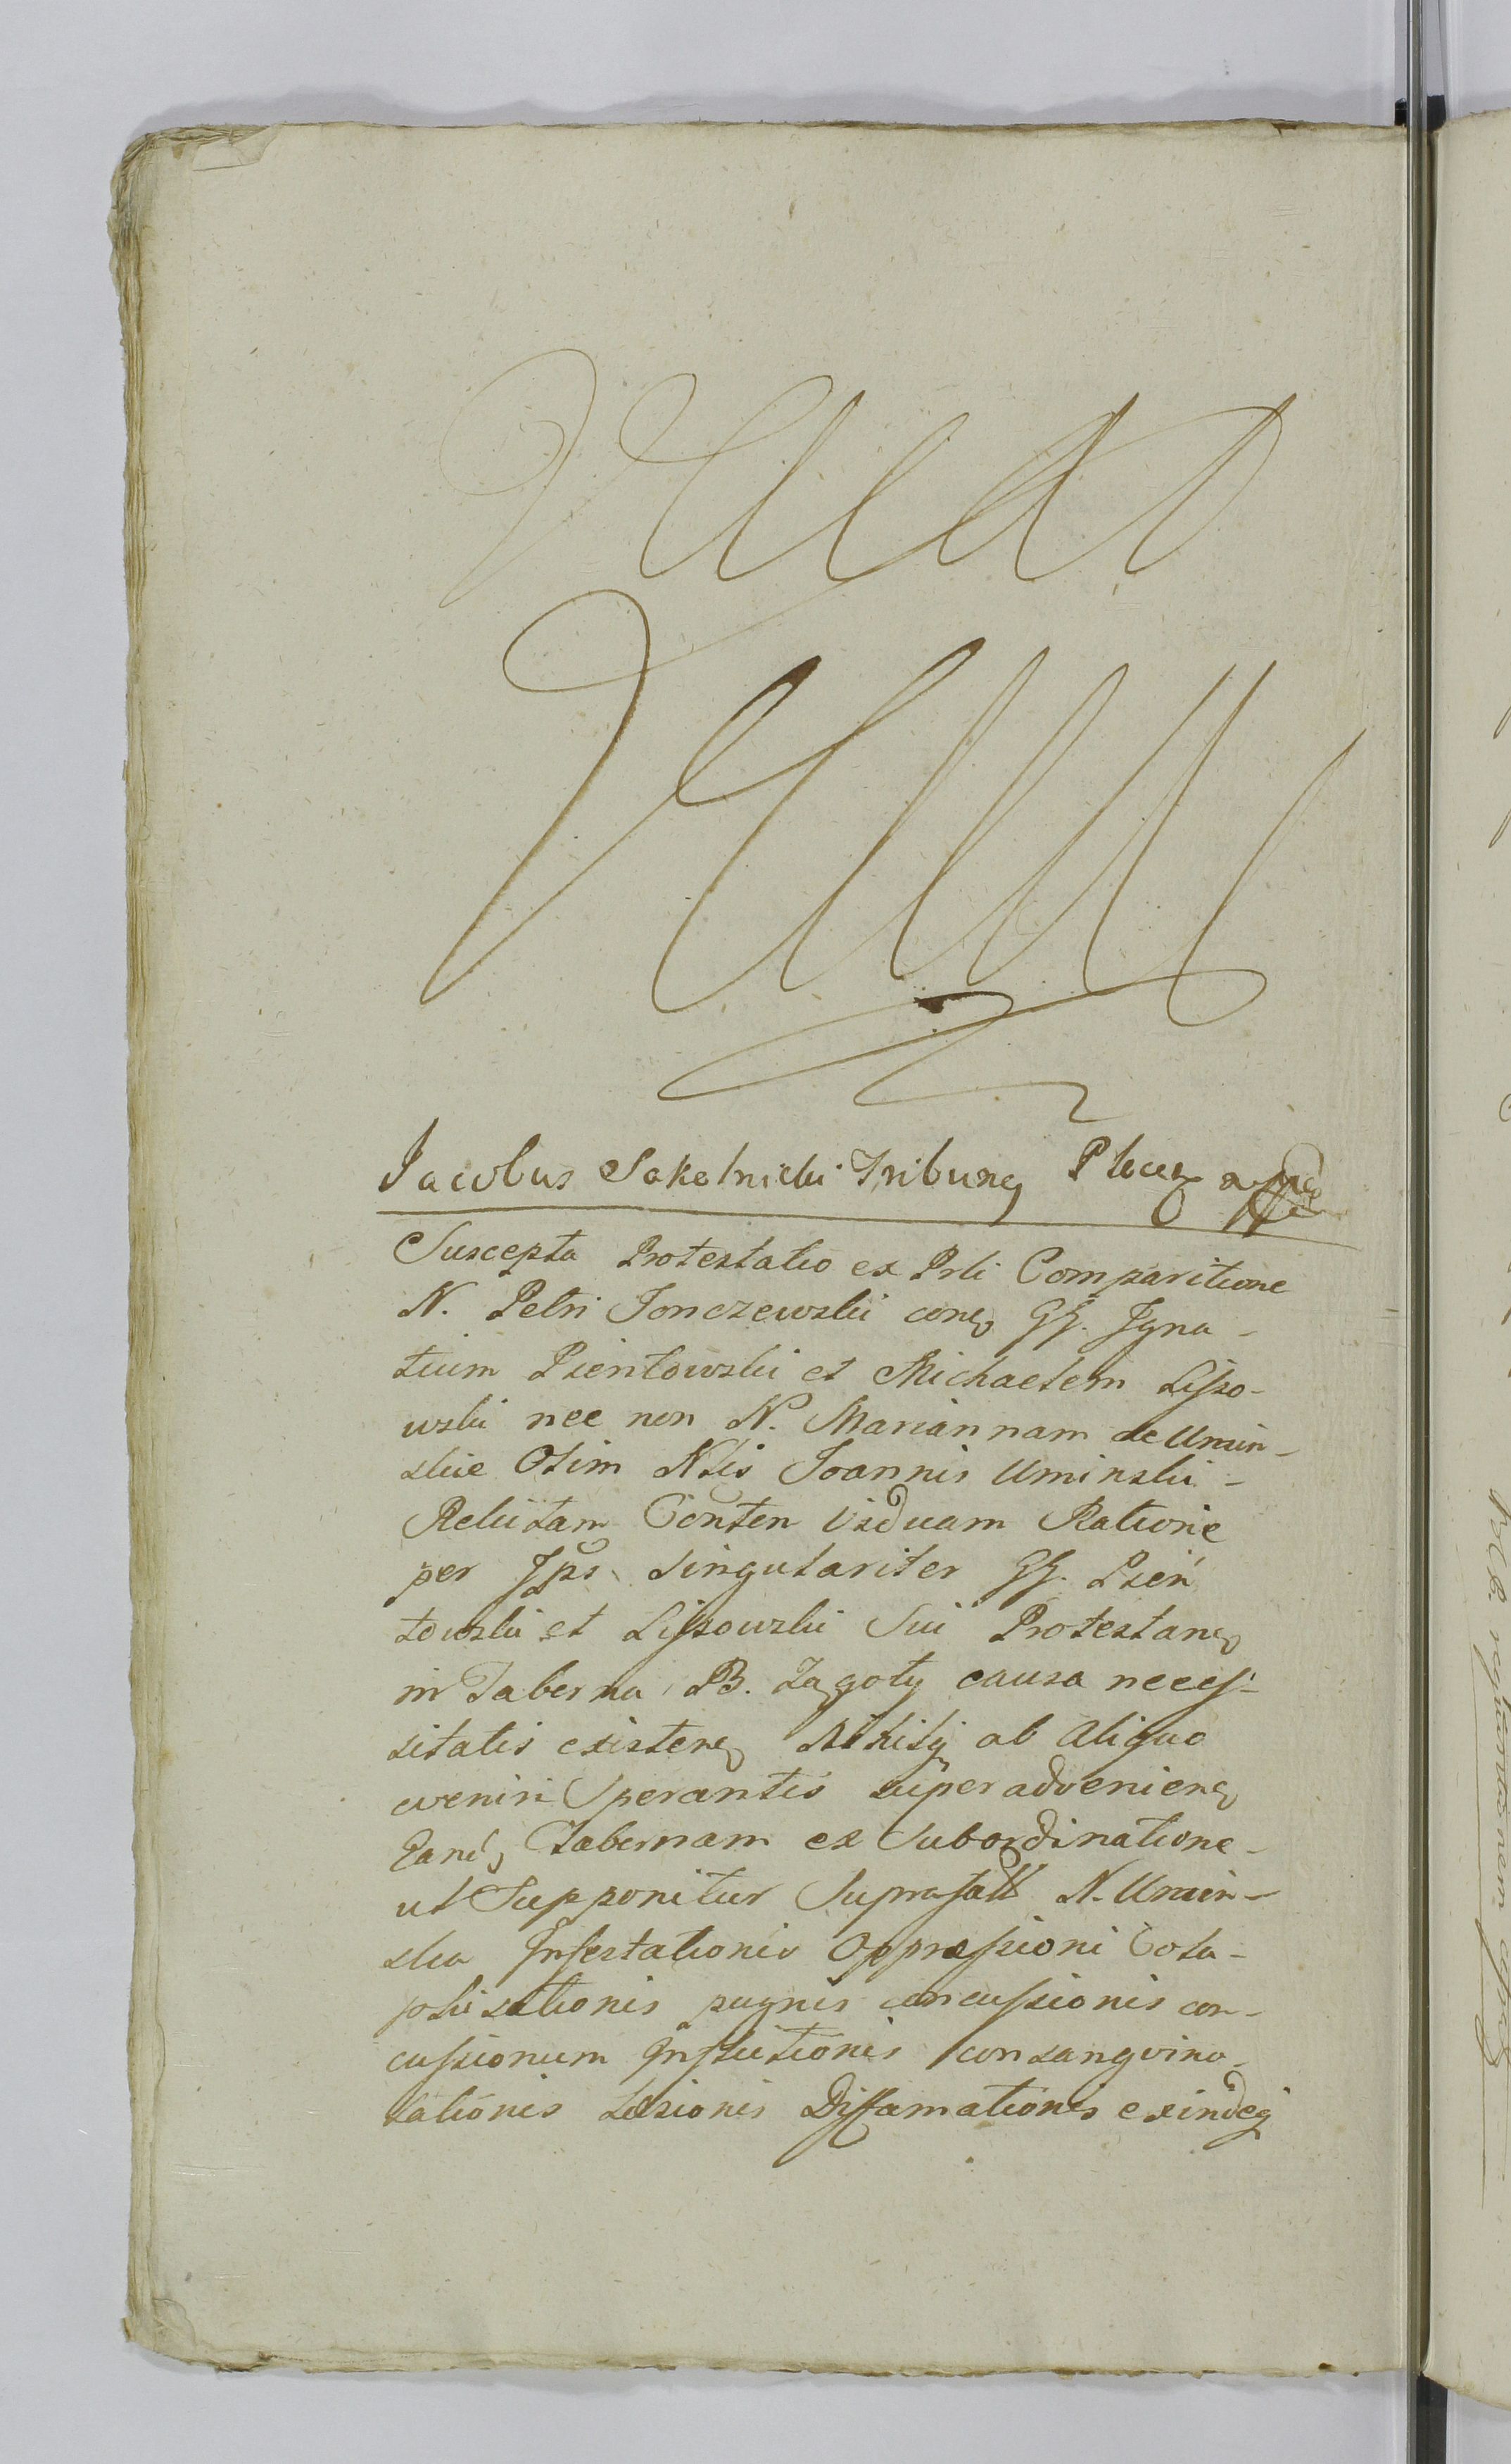 Jacobus Sokolnicki Tribung Plocen
Suscepta Protestatio ex Prli Comparitione
N. Petri Jonczewski conq GG. Igna-
tium Pientowski et Michaelem Lisso-
wski nec non N. Mariannam de Umin-
skie Olim Nlis Joannis Uminski -
Relictam Conten Viduam Ratione
per Ips singulariter GG. Pień
towski et Lissowski Sui Protestanq
in Taberna B. Zagoty causa necess-
sitatis existenq Nihilq ab aliquo
eveniri Sperantis superadvenienq
Eand Tabernam ex Subordinatione -
ut Supponitur Suprafatt N. Umin-
ska Infestationis Oppressioni Cola-
phisationis pugnis concussionis con-
cussionum Inflictionis consangvino-
lationis Læsionis Diffamationis exindeq